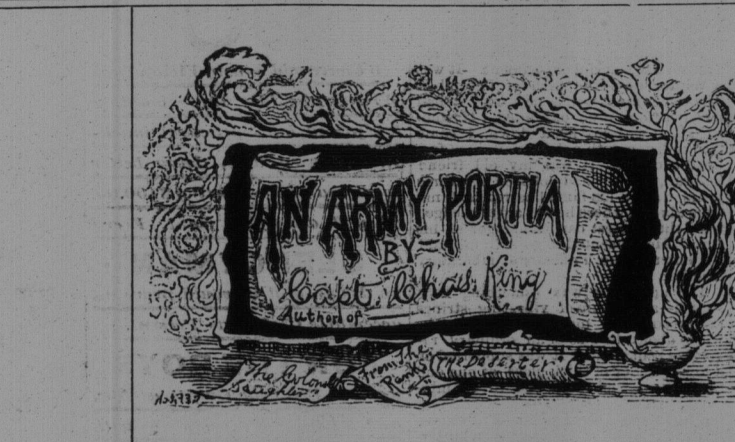 AN ARMY PORTIA
BY
Capt. Chas. King
Author of
The Colonel's
Daughter
From The
Ranks
"The Deserter"